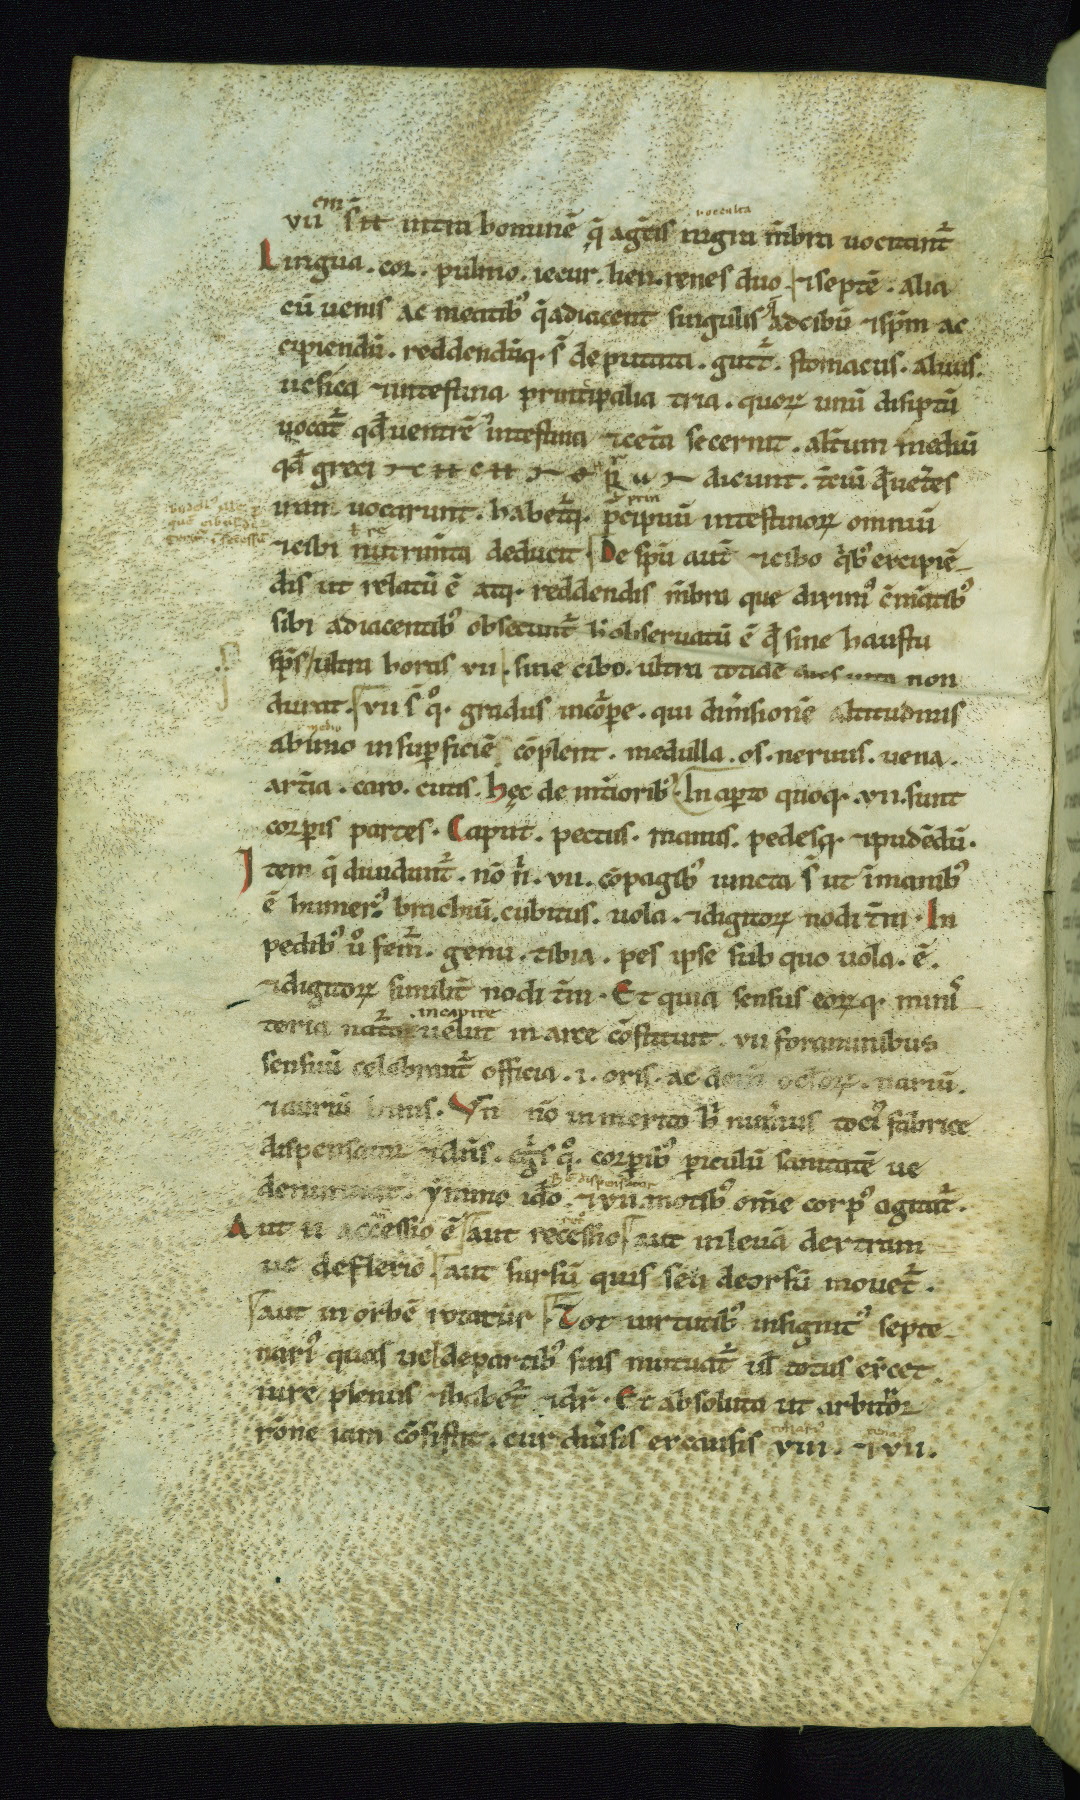 vii sīt intra hominē q̄ agrecis nigra mēbra uocitant᷑
Lingua . cor . pulmo . iecur . lien . renes duo . ⁊ septē . alia
cū uenis ac meatibꝰ q̄ adiacent singulis ad cibū ⁊ sp̄m ac
cipiendū . reddendūq; . s̄ deputata . gutt᷑ . stomacus . aluus .
uesica ⁊ intestina principalia tria . quoꝝ unū disiptū
uocat᷑ qđ uentrē ⁊ intestina ⁊ cetā secernit . alt̄um mediū
qđ greci dicunt . t̄ciū qđ uet̄es
uocarunt . habet᷑q; . p̄cipuū intestinoꝝ omniū
⁊ cibi nutrim̄ta deducit De sp̄u aut̄ ⁊ cibo q̄bꝰ excipiē
dis ut relatū ē atq; . reddendis m̄bra que diximꝰ cū meatibꝰ
sibi adiacentibꝰ obsecunt᷑ h̄ obseruatū ē qđ sine haustu
sp̄s ultra horas vii . sine cibo . ultra totidē dies uita non
durat . vii s̄ qͦ; . gradus in corpe . qui dim̄sionē altitudinis
ab imo in sup̄ficiē cōplent . medulla . os . neruus . uena .
art̄ia . caro . cutis . hęc de int̄ioribꝰ . In apto quoq; . vii . sunt
corpis partes . Caput . pectus . manus . pedesq; . ⁊ pudēdū .
Item q̄ diuidunt᷑ . nō n̄ . vii . cōpagibꝰ iuncta s̄ ut ī manibꝰ
ē humerꝰ . brachiū . cubitus . uola . ⁊ digitoꝝ nodi t̄ni . In
pedibꝰ uͦ fem᷑ . genu . tibia . pes ipse sub quo uola . ē .
⁊ digitoꝝ similit̄ nodi t̄ni . Et quia sensus eoꝝq; . minis
teria uelut in arce cōstituit . vii foraminibus
sensuū celebrant᷑ officia . i . oris . ac nariū .
⁊ auriū binis . Vn nō inmerito h̄ num̄us tociꝰ fabrice
dispensator ⁊ dn̄s . egrīs qͦ; . corpibꝰ periculū sanitatē ue
denunciat . ymmo idō . ⁊ vii . motibꝰ om̄e corpꝰ agitat᷑ .
Aut n̄ accessio ē aut recessio aut in leuā dextram
ue deflexio . aut sursū quis seu deorsū mouet᷑ .
aut in orbē rotatur Tot uirtutibꝰ insignitꝰ septe
nariꝰ quas uel de partibꝰ suis mutuat᷑ ul̄ totus ex̄cet
iure plenus ⁊ habet᷑ ⁊ dr̄ . Et absoluta ut arbitror
rōne iam cōsistit . cur diuersis ex causis viii . ⁊ vii .